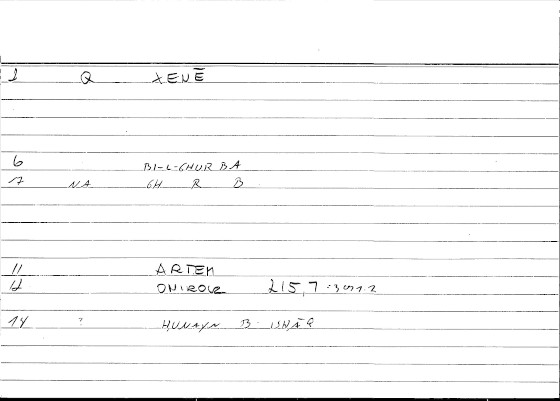 1 Q XENĒ
6 BI-L-GHURBA
7 NA GH R B
11 ARTEM
12 ONIROCR 215,7
14 HUNAYN B ISHĀQ